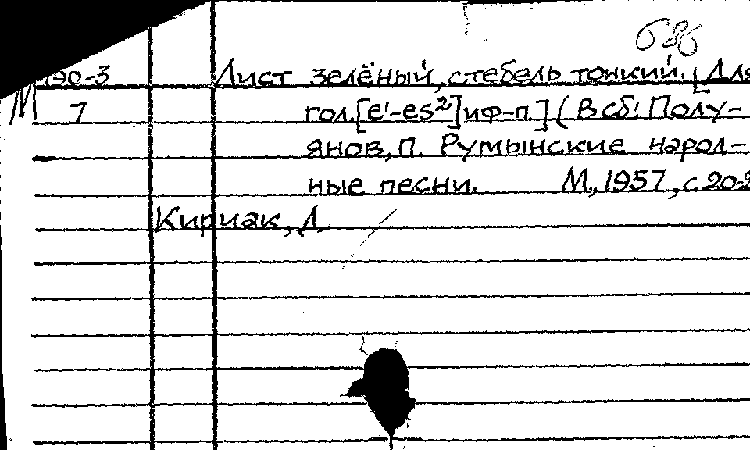 686
Лист зелёный, стебель тонкий. [Для
М 7 гол.[e¹-es²] и ф-п] (В сб: Полу-
янов, П. Румынские народ-
ные песни. М., 1957, с 20-2
Кириак, Д.